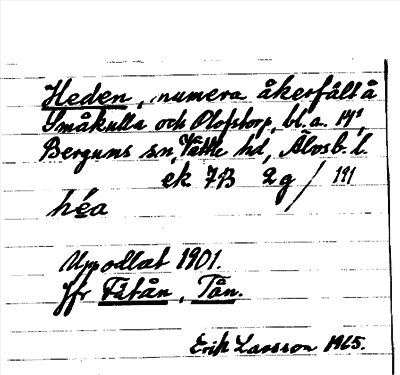 Heden, numera åkerfält å
Småkulla och Olofstorp, bl. a. 14¹,
Bergums sn, Vättle hd, Älvsb. l.
ek 7B 2g / 191
héa
Uppodlat 1901.
Jfr Fåtån, Tån.
Erik Larsson 1965.